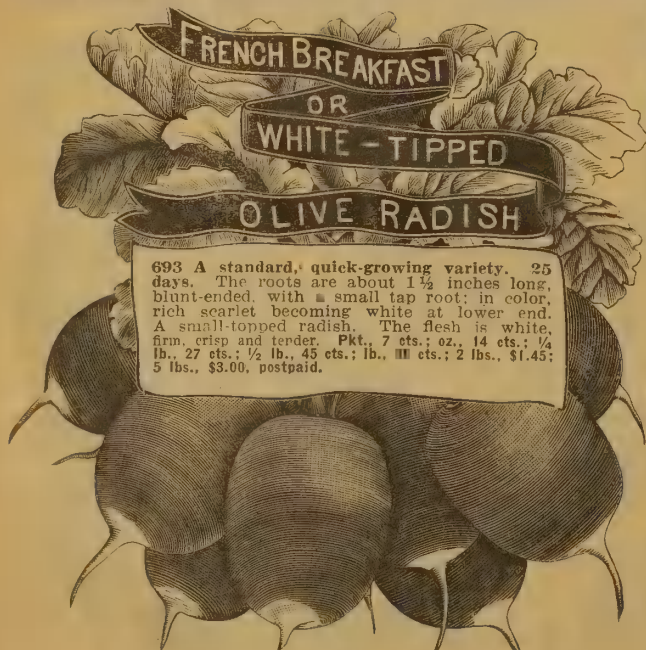 FRENCH BREAKFAST
OR
WHITE-TIPPED
OLIVE RADISH
693 A standard, quick-growing variety. 25
days. The roots are about 1½ inches long,
blunt-ended, with small tap root; in color,
rich scarlet becoming white at lower end.
A small-topped radish. The flesh is white,
firm, crisp and tender. Pkt., 7 cts.; oz., 14 cts.; ¼
lb., 27 cts.; ½ lb., 45 cts.; lb., cts.; 2 lbs., $1.45;
5 lbs., $3.00, postpaid.